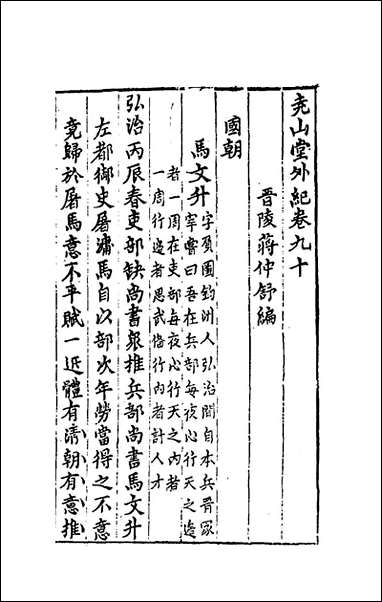 尭山堂外紀卷九十
晉陵蔣仲舒編
國朝
馬文升
字負圖鈞州人弘治間自本兵晉冡
宰嘗曰吾在兵部每夜心行天之邊
者一周在吏部每夜心行天之內者
一周行邊者思武備行內者計人才
弘治丙辰春吏部缺尚書衆推兵部尚書馬文升
左都御史屠滽馬自以部次年勞當得之不意
竟歸於屠馬意不平賦一近體有清朝有意推